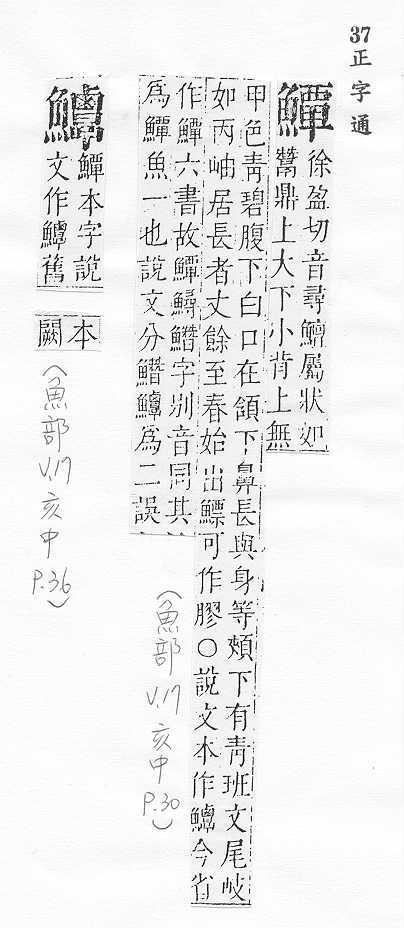 37正字通
鱏
徐盈切音尋鱣屬狀如
鬵鼎上大下小背上無
甲色青碧腹下白口在頷下鼻長與身等頰下有青班文尾岐
如丙岫居長者丈餘至春始出鰾可作膠○說文本作鱏今省
作鱏六書故鱏鱘鱕字別音同其
為鱏魚一也說文分鱏為二誤
鱏本字說
文作鱏舊
本
闕
(魚部
V.17
亥中
P.30)
(魚部
V.17
亥中
P.36)